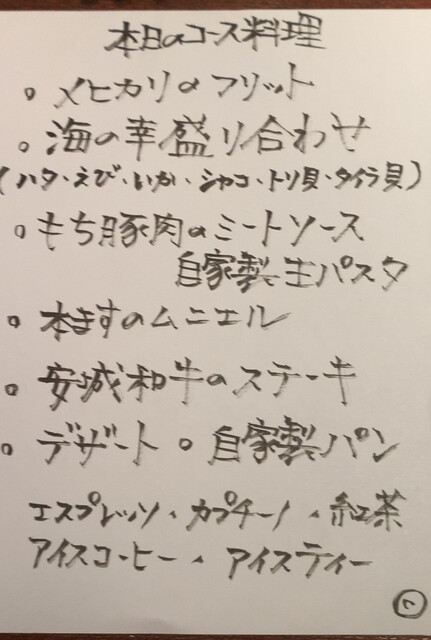 本日のコース料理
。メヒカリのフリット
。海の幸盛り合わせ
(ハタ・えび・いか・シャコ・トリ貝・タイラ貝)
。もち豚肉のミートソース
自家製生パスタ
。本ますのムニエル
。安城和牛のステーキ
。デザート 。自家製パン
エスプレッソ・カプチーノ・紅茶
アイスコーヒー・アイスティー